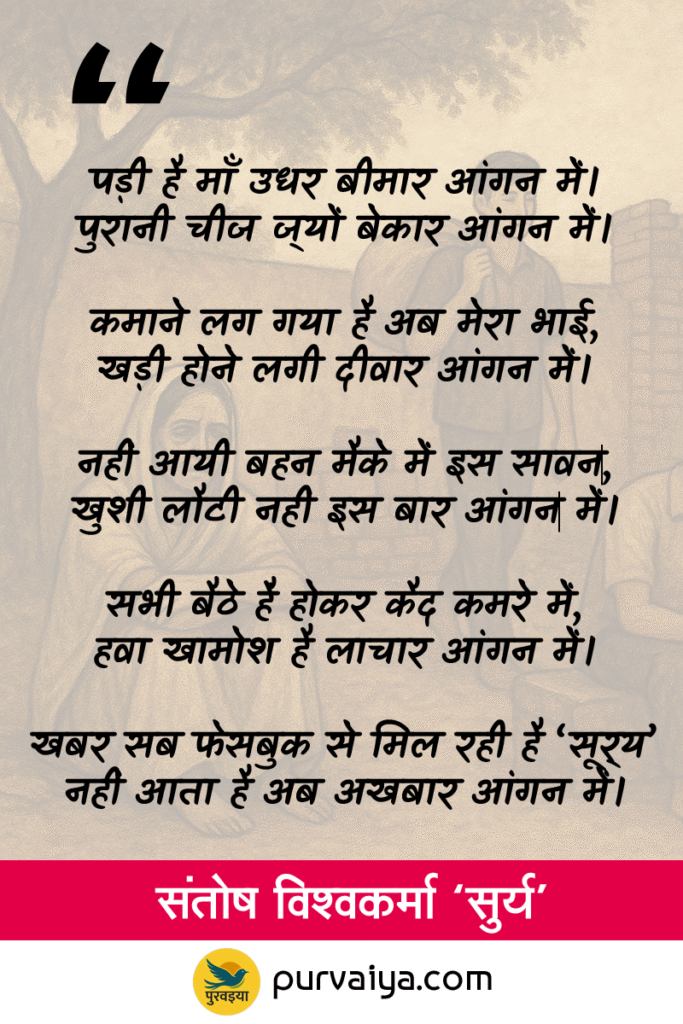 “
पड़ी है माँ उधर बीमार आंगन में।
पुरानी चीज ज्‌यों बेकार आंगन में।
कमाने लग गया है अब मेरा भाई,
खड़ी होने लगी दीवार आंगन में।
नही आयी बहन मैके में इस सावन,
खुशी लौटी नही इस बार आंगन में।
सभी बैठे है होकर कैद कमरे में,
हवा खामोश है लाचार आंगन में।
खबर सब फेसबुक से मिल रही है ‘सूर्‌य’
नही आता है अब अखबार आंगन में।
संतोष विश्वकर्मा ‘सुर्य’
पुरवइया purvaiya.com